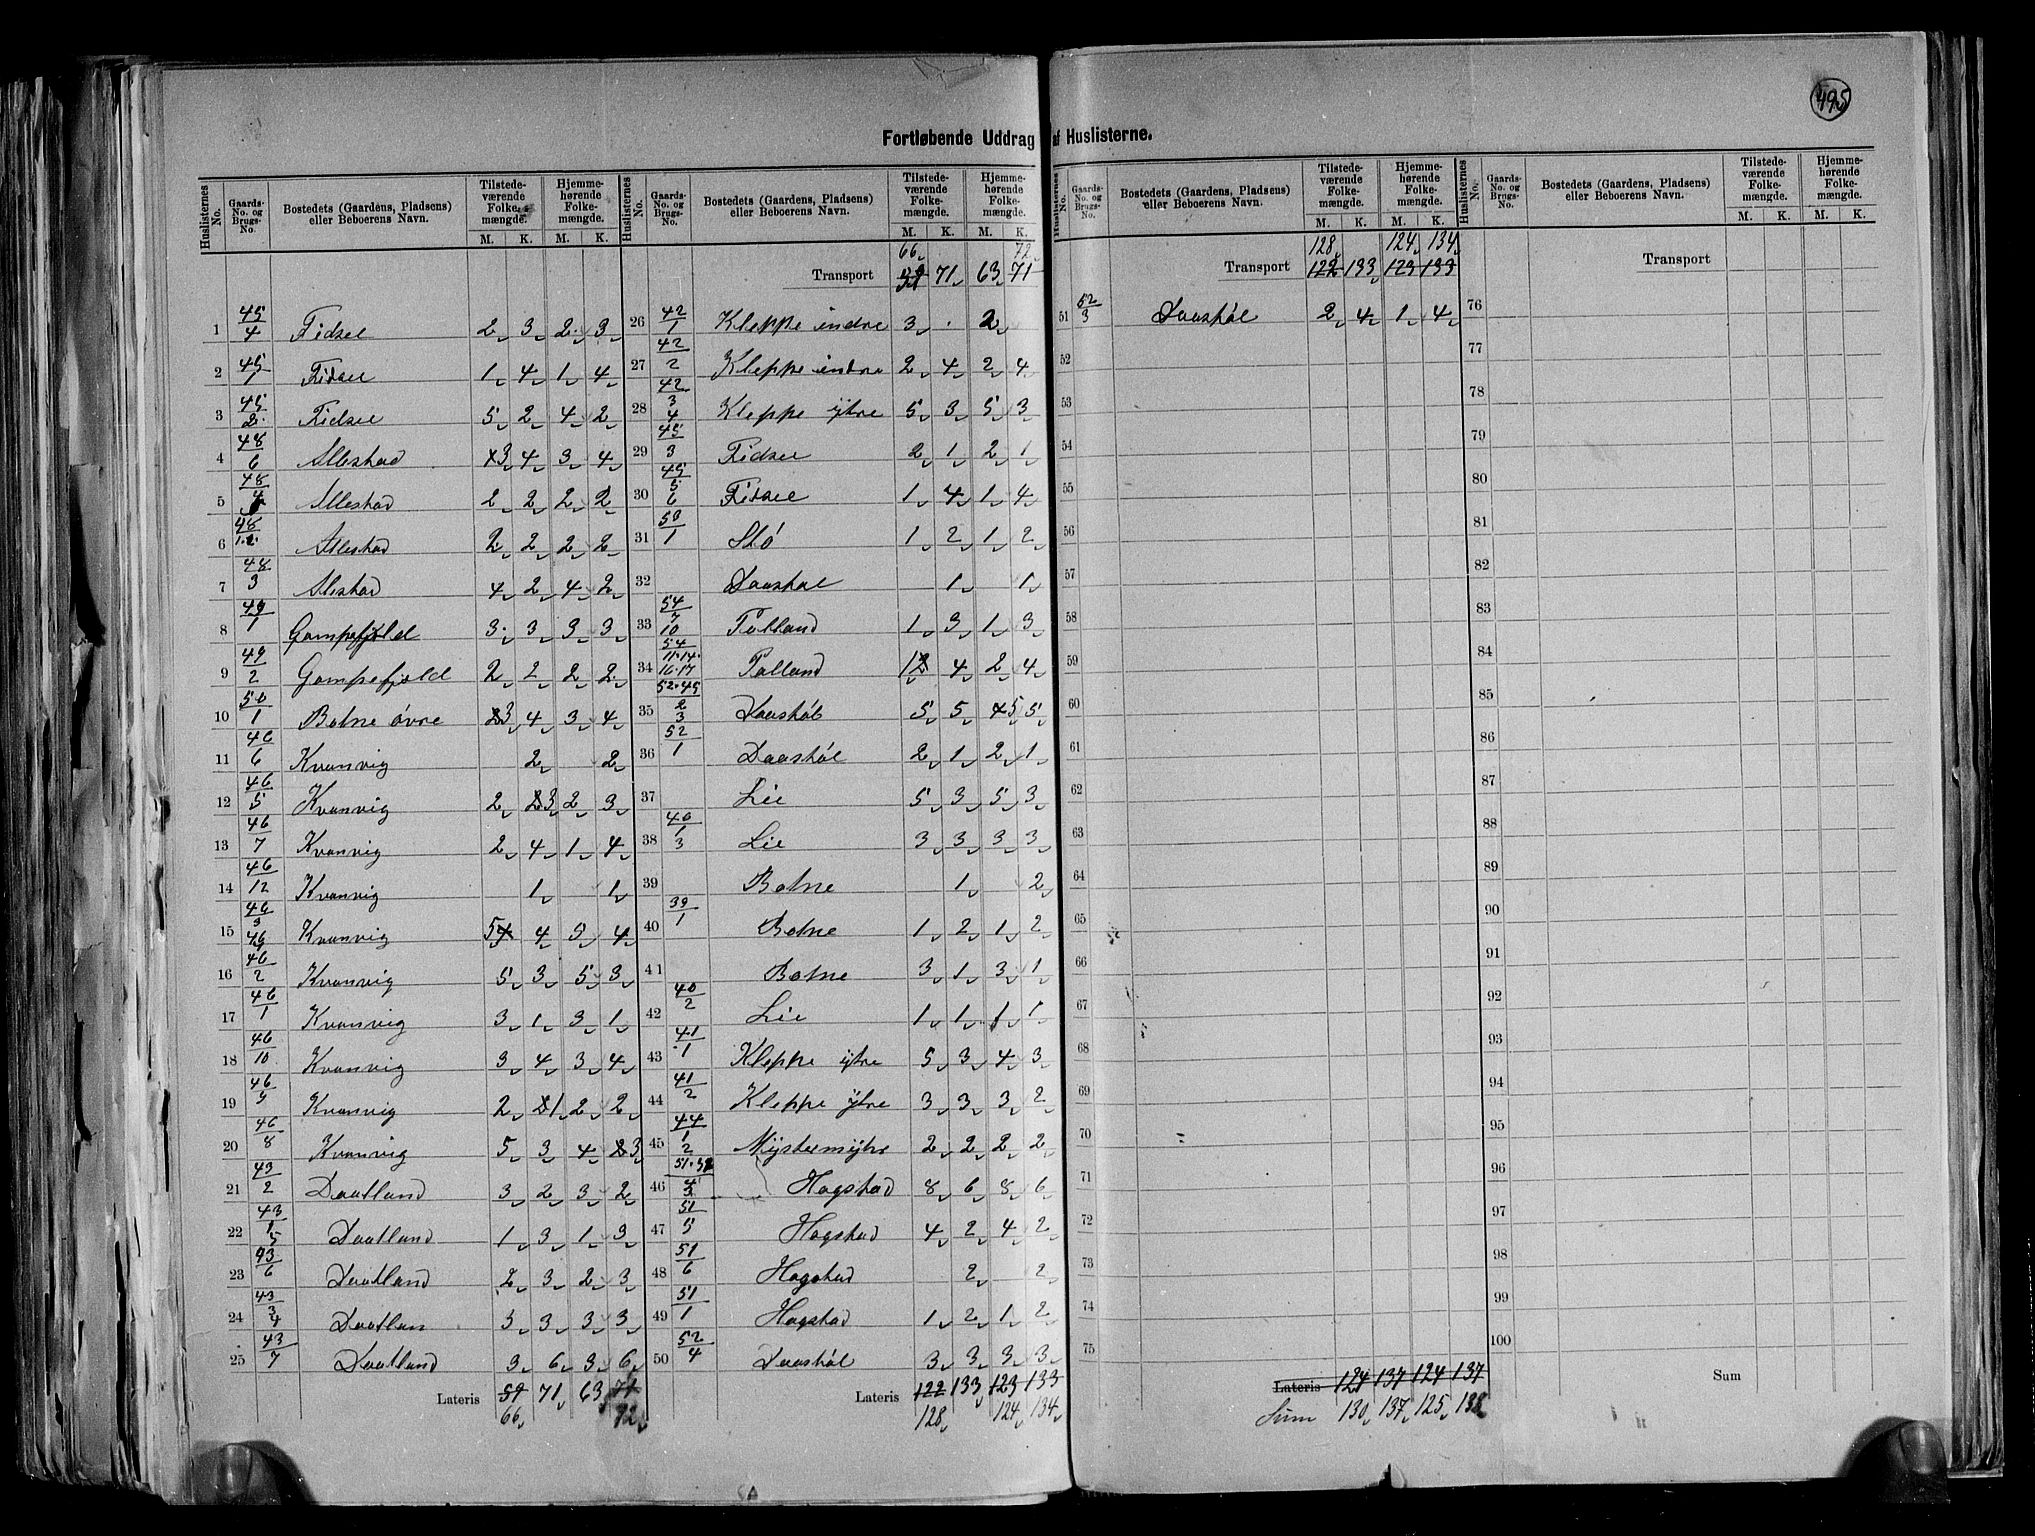 495
Fortløbende Uddrag af Huslisterne.
Huslisternes No. Gaards-No. og Brugs-No. Bostedets (Gaardens, Pladsens) eller Beboerens Navn. Tilstedeværende Folkemængde. M. K. Hjemmehørende Folkemængde. M. K.
1 45/4 Fidsee 2 3 2 3
2 45/1 Fidsee 1 4 1 4
3 45/2 Fidsee 5 2 4 2
4 48/6 Alleshad 3 4 3 4
5 48/4 Alleshad 2 2 2 2
6 48/1.2. Alleshad 2 2 2 2
7 48/3 Alleshad 4 2 4 2
8 49/1 Gampefjeld 3 3 3 3
9 49/2 Gampefjeld 2 2 2 2
10 50/1 Botne øvre 3 4 3 4
11 46/6 Kvanvig 2 2
12 46/5 Kvanvig 2 3 2 3
13 46/7 Kvanvig 2 4 1 4
14 46/12 Kvanvig 1 1
15 46/3 46/4 Kvanvig 5 4 5 4
16 46/2 Kvanvig 5 3 5 3
17 46/1 Kvanvig 3 1 3 1
18 46/10 Kvanvig 3 4 3 4
19 46/9 Kvanvig 2 1 2 2
20 46/8 Kvanvig 5 3 4 3
21 43/2 Daatland 3 2 3 2
22 43/1 5 Daatland 1 3 1 3
23 43/6 Daatland 2 3 2 3
24 43/3 4 Daatlan 3 3 3 3
25 43/7 Daatland 3 6 3 6
Lateris 59 71 63 71
66 72
Huslisternes No. Gaards-No. og Brugs-No. Bostedets (Gaardens, Pladsens) eller Beboerens Navn. Tilstedeværende Folkemængde. M. K. Hjemmehørende Folkemængde. M. K.
66 72
Transport 59 71 63 71
26 42/1 Kleppe indre 3 . 2
27 42/2 Kleppe indre 2 4 2 4
28 42/3 4 Kleppe ytre 5 3 5 3
29 45/3 Fidsee 2 1 2 1
30 45/5 6 Fidsee 1 4 1 4
31 53/1 Stø 1 2 1 2
32 Daashøl 1 1
33 54/7 10 Tolland 1 3 1 3
34 54/11.14.16.17 Tolland 1 4 2 4
35 52.45/2 3 Daashøl 5 5 5 5
36 52/1 Daashøl 2 1 2 1
37 Lie 5 3 5 3
38 40/1 3 Lie 3 3 3 3
39 Botne 1 2
40 39/1 Botne 1 2 1 2
41 Botne 3 1 3 1
42 40/2 Lie 1 1 1 1
43 41/1 Kleppe ytre 5 3 4 3
44 41/2 Kleppe ytre 3 3 3 2
45 44/1 2 2 2 2 2
46 Hogstad 8 6 8 6
47 51/5 Hogstad 4 2 4 2
48 51/6 Hogstad 2 2
49 51/1 Hogstad 1 2 1 2
50 52/4 Daashøl 3 3 3 3
Lateris 122 133 123 133
128 124 134
Huslisternes No. Gaards-No. og Brugs-No. Bostedets (Gaardens, Pladsens) eller Beboerens Navn. Tilstedeværende Folkemængde. M. K. Hjemmehørende Folkemængde. M. K.
128 124 134
Transport 122 133 123 133
51 52/3 Daashøl 2 4 1 4
52
53
54
55
56
57
58
59
60
61
62
63
64
65
66
67
68
69
70
71
72
73
74
75
Lateris 124 137 124 137
Sum 130 137 125 138
Huslisternes No. Gaards-No. og Brugs-No. Bostedets (Gaardens, Pladsens) eller Beboerens Navn. Tilstedeværende Folkemængde. M. K. Hjemmehørende Folkemængde. M. K.
Transport
76
77
78
79
80
81
82
83
84
85
86
87
88
89
90
91
92
93
94
95
96
97
98
99
100
Sum